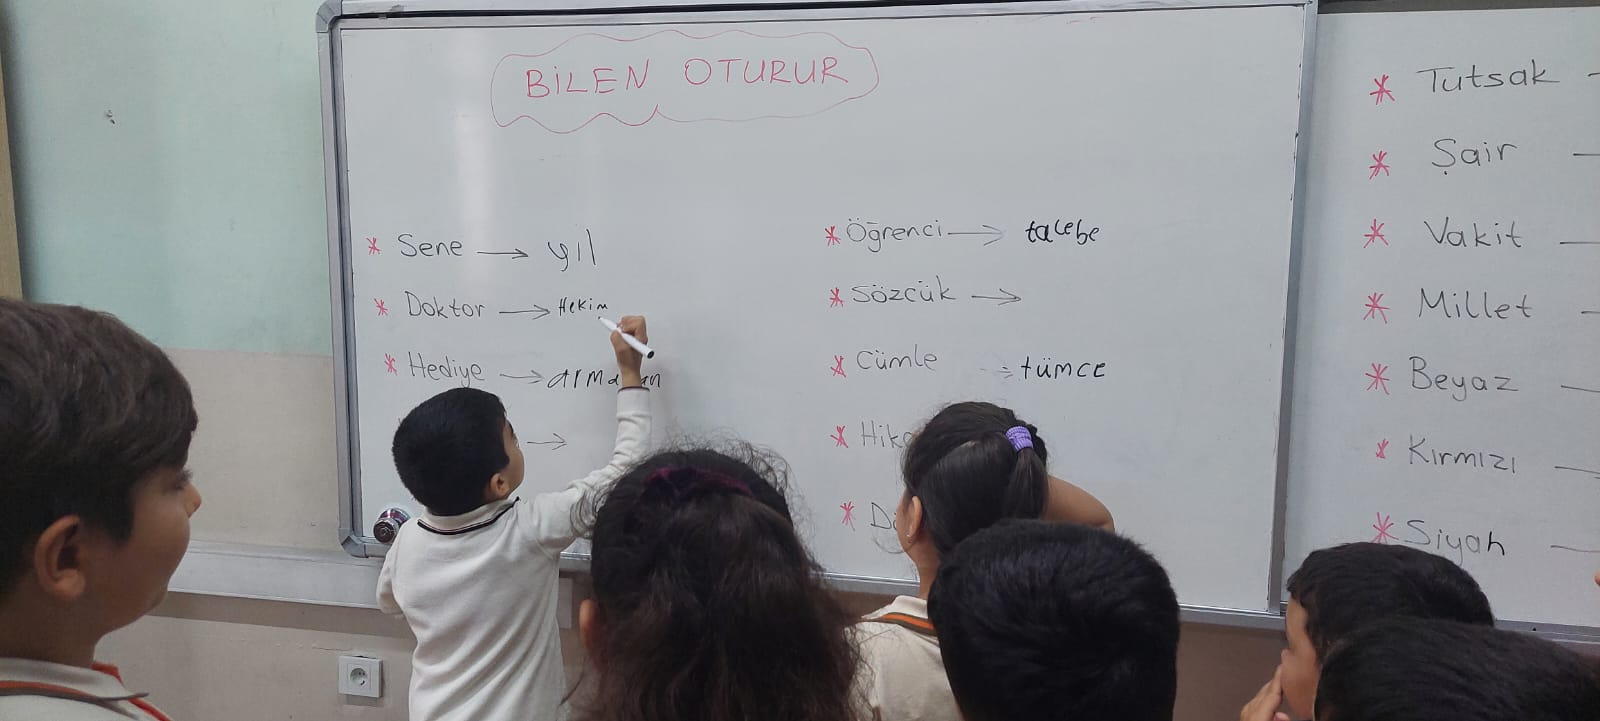 BİLEN OTURUR
* Sene → yıl
* Doktor → Hekim
* Hediye → armağan
→
* Öğrenci → talebe
* Sözcük →
* Cümle → tümce
* Tutsak
* Şair
* Vakit
* Millet
* Beyaz
* Kırmızı
* Siyah